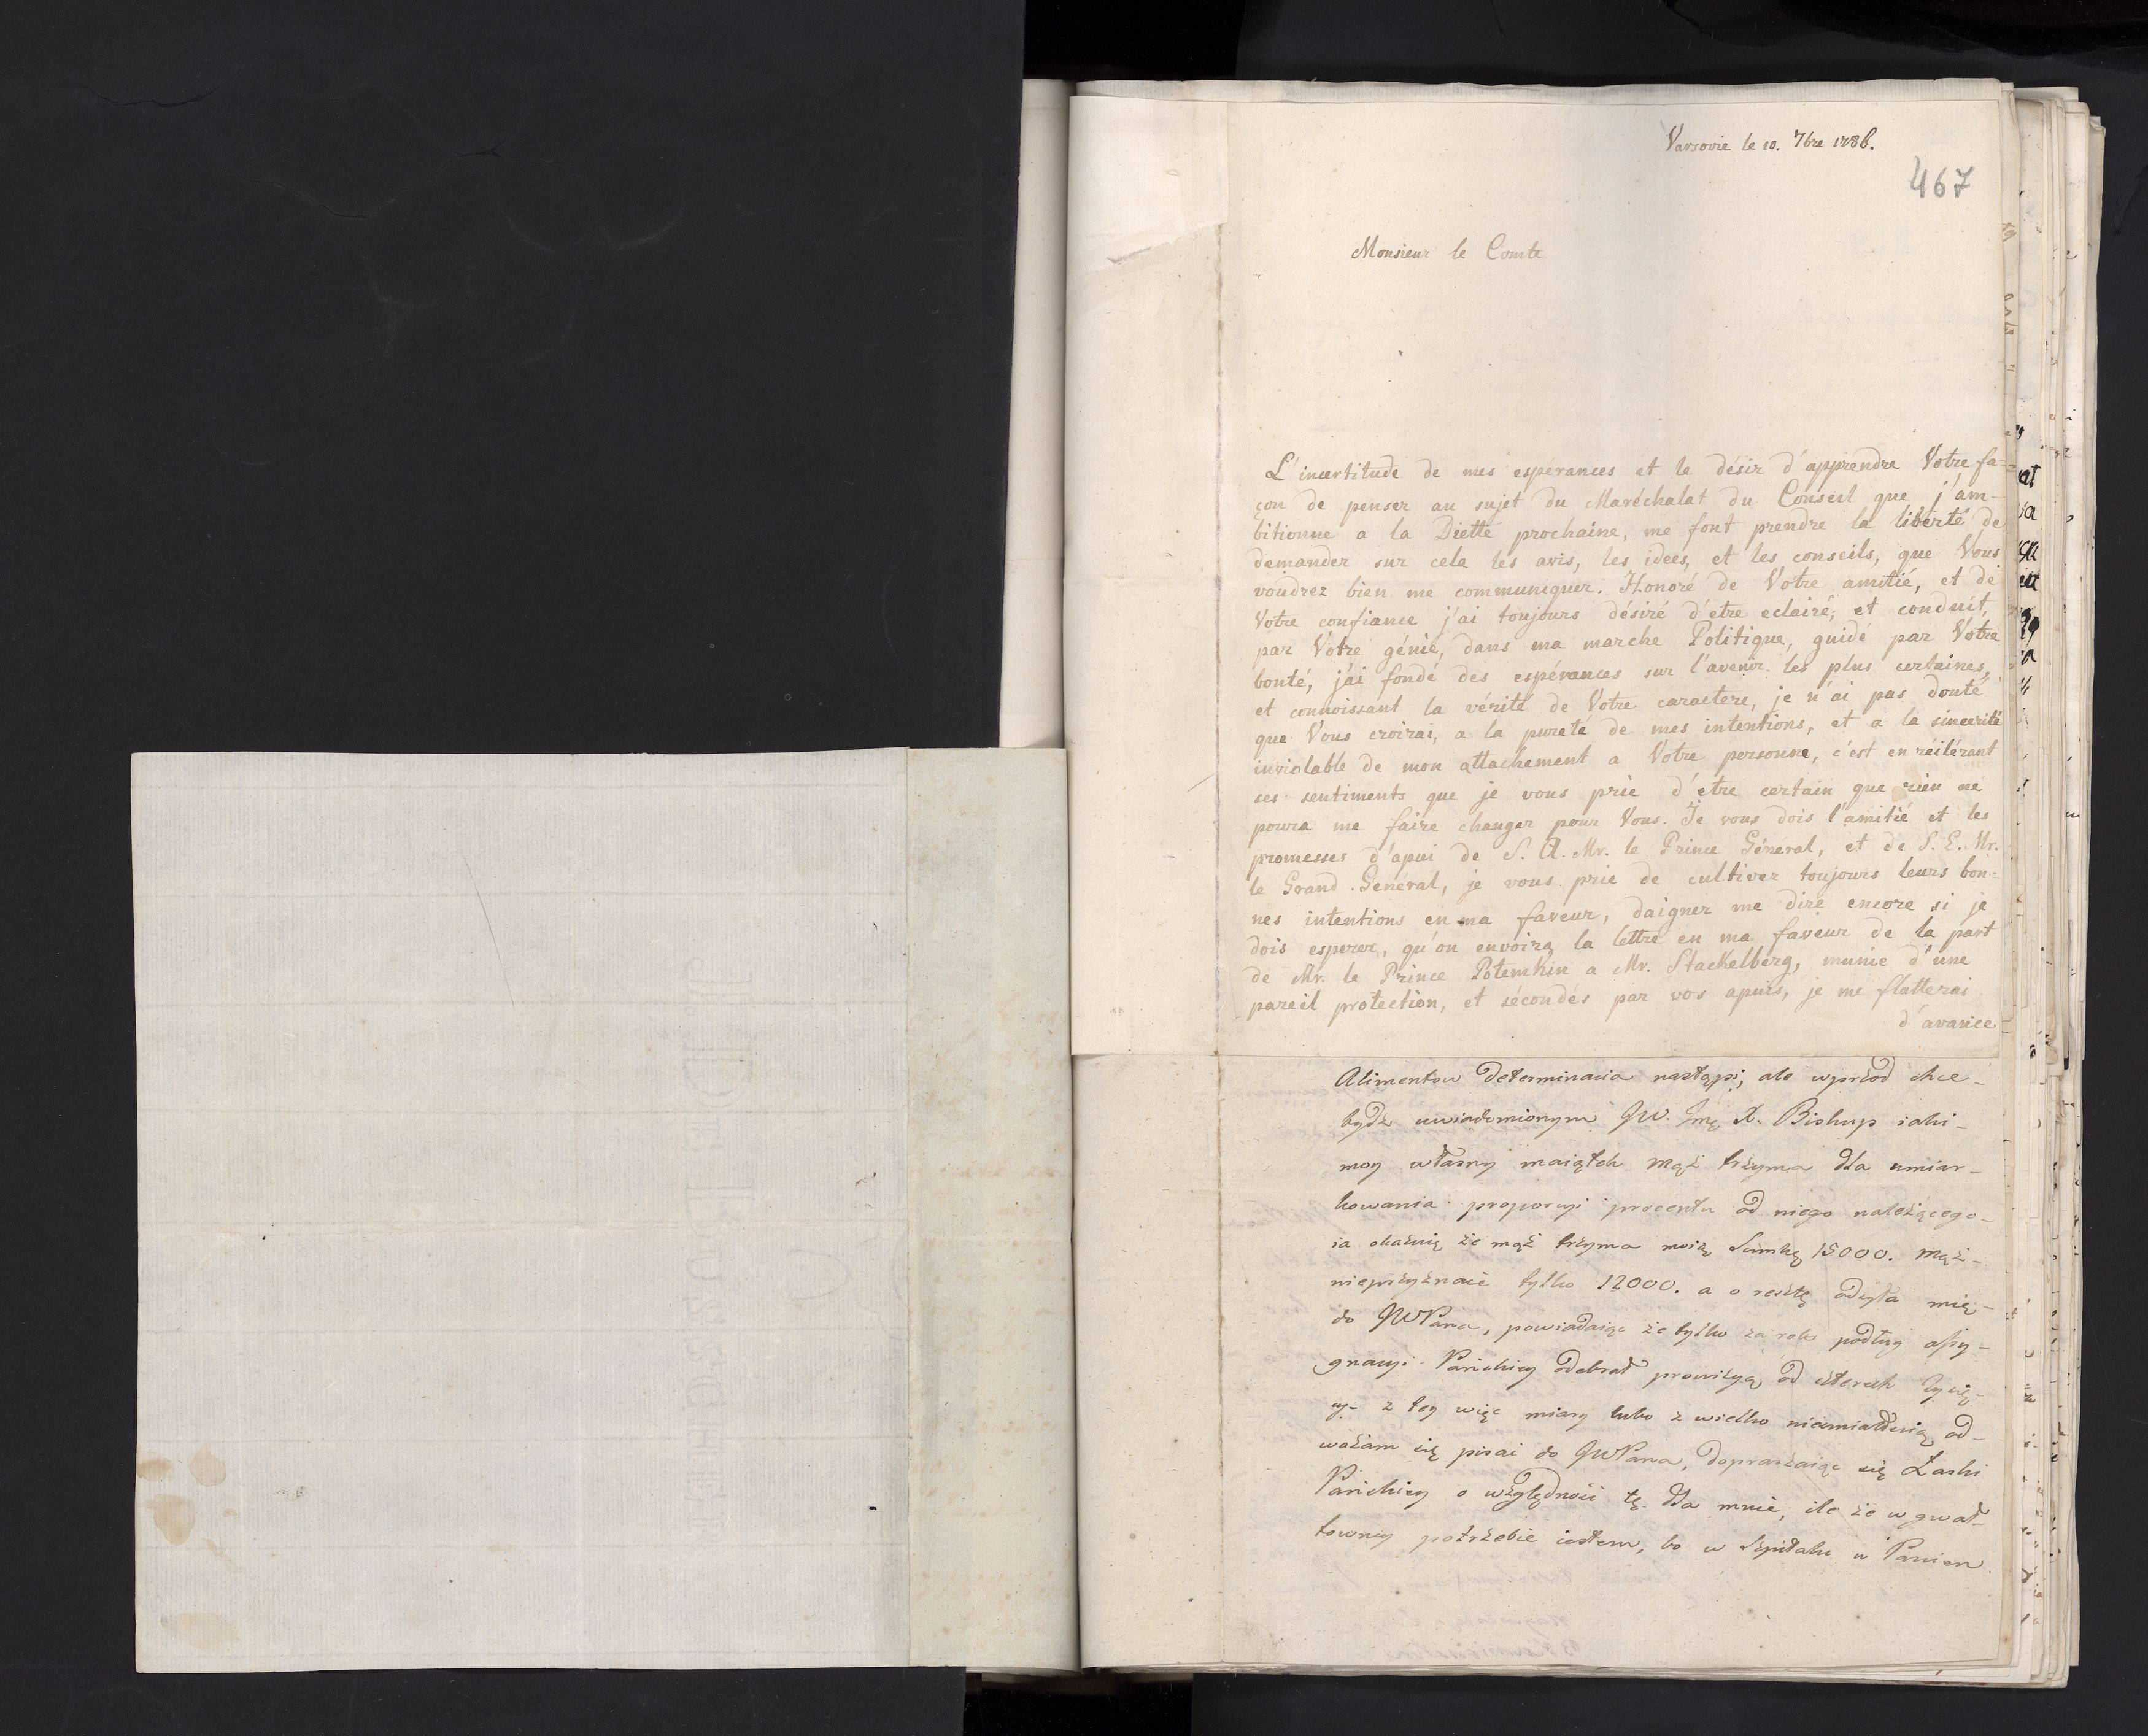 Varsovie le 10. 7bre 1786.
467
Monsieur le Comte
L'incertitude de mes esperances et le désir d'apprendre Votre fa-
çon de penser au sujet du Maréchalat du Conseil que j'am-
bitionne a la Diette prochaine, me font prendre la liberté de
demander sur cela les avis, les idees, et les conseils, que Vous
voudrez bien me communiquer. Honoré de Votre amitié, et de
Votre confiance j'ai toujours désiré d'etre eclairé, et conduit,
par Votre génie, dans ma marche Politique, guidé par Votre
bonté, j'ai fondé des espérances sur l'avenir les plus certaines,
et connoissant la vérité de Votre caractere, je n'ai pas douté
que Vous croirai, a la pureté de mes intentions, et a la sincerité
inviolable de mon attachement a Votre personne, c'est en réitérant
ses sentiments que je vous prie d'etre certain que rien ne
poura me faire changer pour Vous. Je vous dois l'amitié et les
promesses d'apui de S. A. Mr. le Prince Géneral, et de S. E. Mr.
le Grand General, je vous prie de cultiver toujours leurs bon-
nes intentions en ma faveur, daigner me dire encore si je
dois esperer, qu'on envoira la lettre en ma faveur de la part
de Mr. le Prince Potemkin a Mr. Stackelberg, munie d'une
pareil protection, et sécondés par vos apuis, je me flatterai
d'avance
Alimentow determinacia nastąpi, ale wprzod chce
bydz uwiadomionym JW. Jmę X. Biskup iaki
moy własny maiątek mąż trzyma dla umiar-
kowania proporcyi procentu od niego należącego
ia okazuię że mąż trzyma moię Summę 15000. Mąż
nieprzyznaie tylko 12000. a o resztę odsyła mię
do JWPana, powiadaiąc że tylko za rok podług assy-
gnacyi Pańskiey odebrał prowizyą od czterech Tysię-
cy- z tey więc miary lubo z wielko nieśmiałścią od-
ważam się pisać do JWPana, dopraszaiąc się Łaski
Pańskiey o względność tę dla mnie, ile że w gwał-
towney potrzebie iestem, bo w Szpitalu u Panien